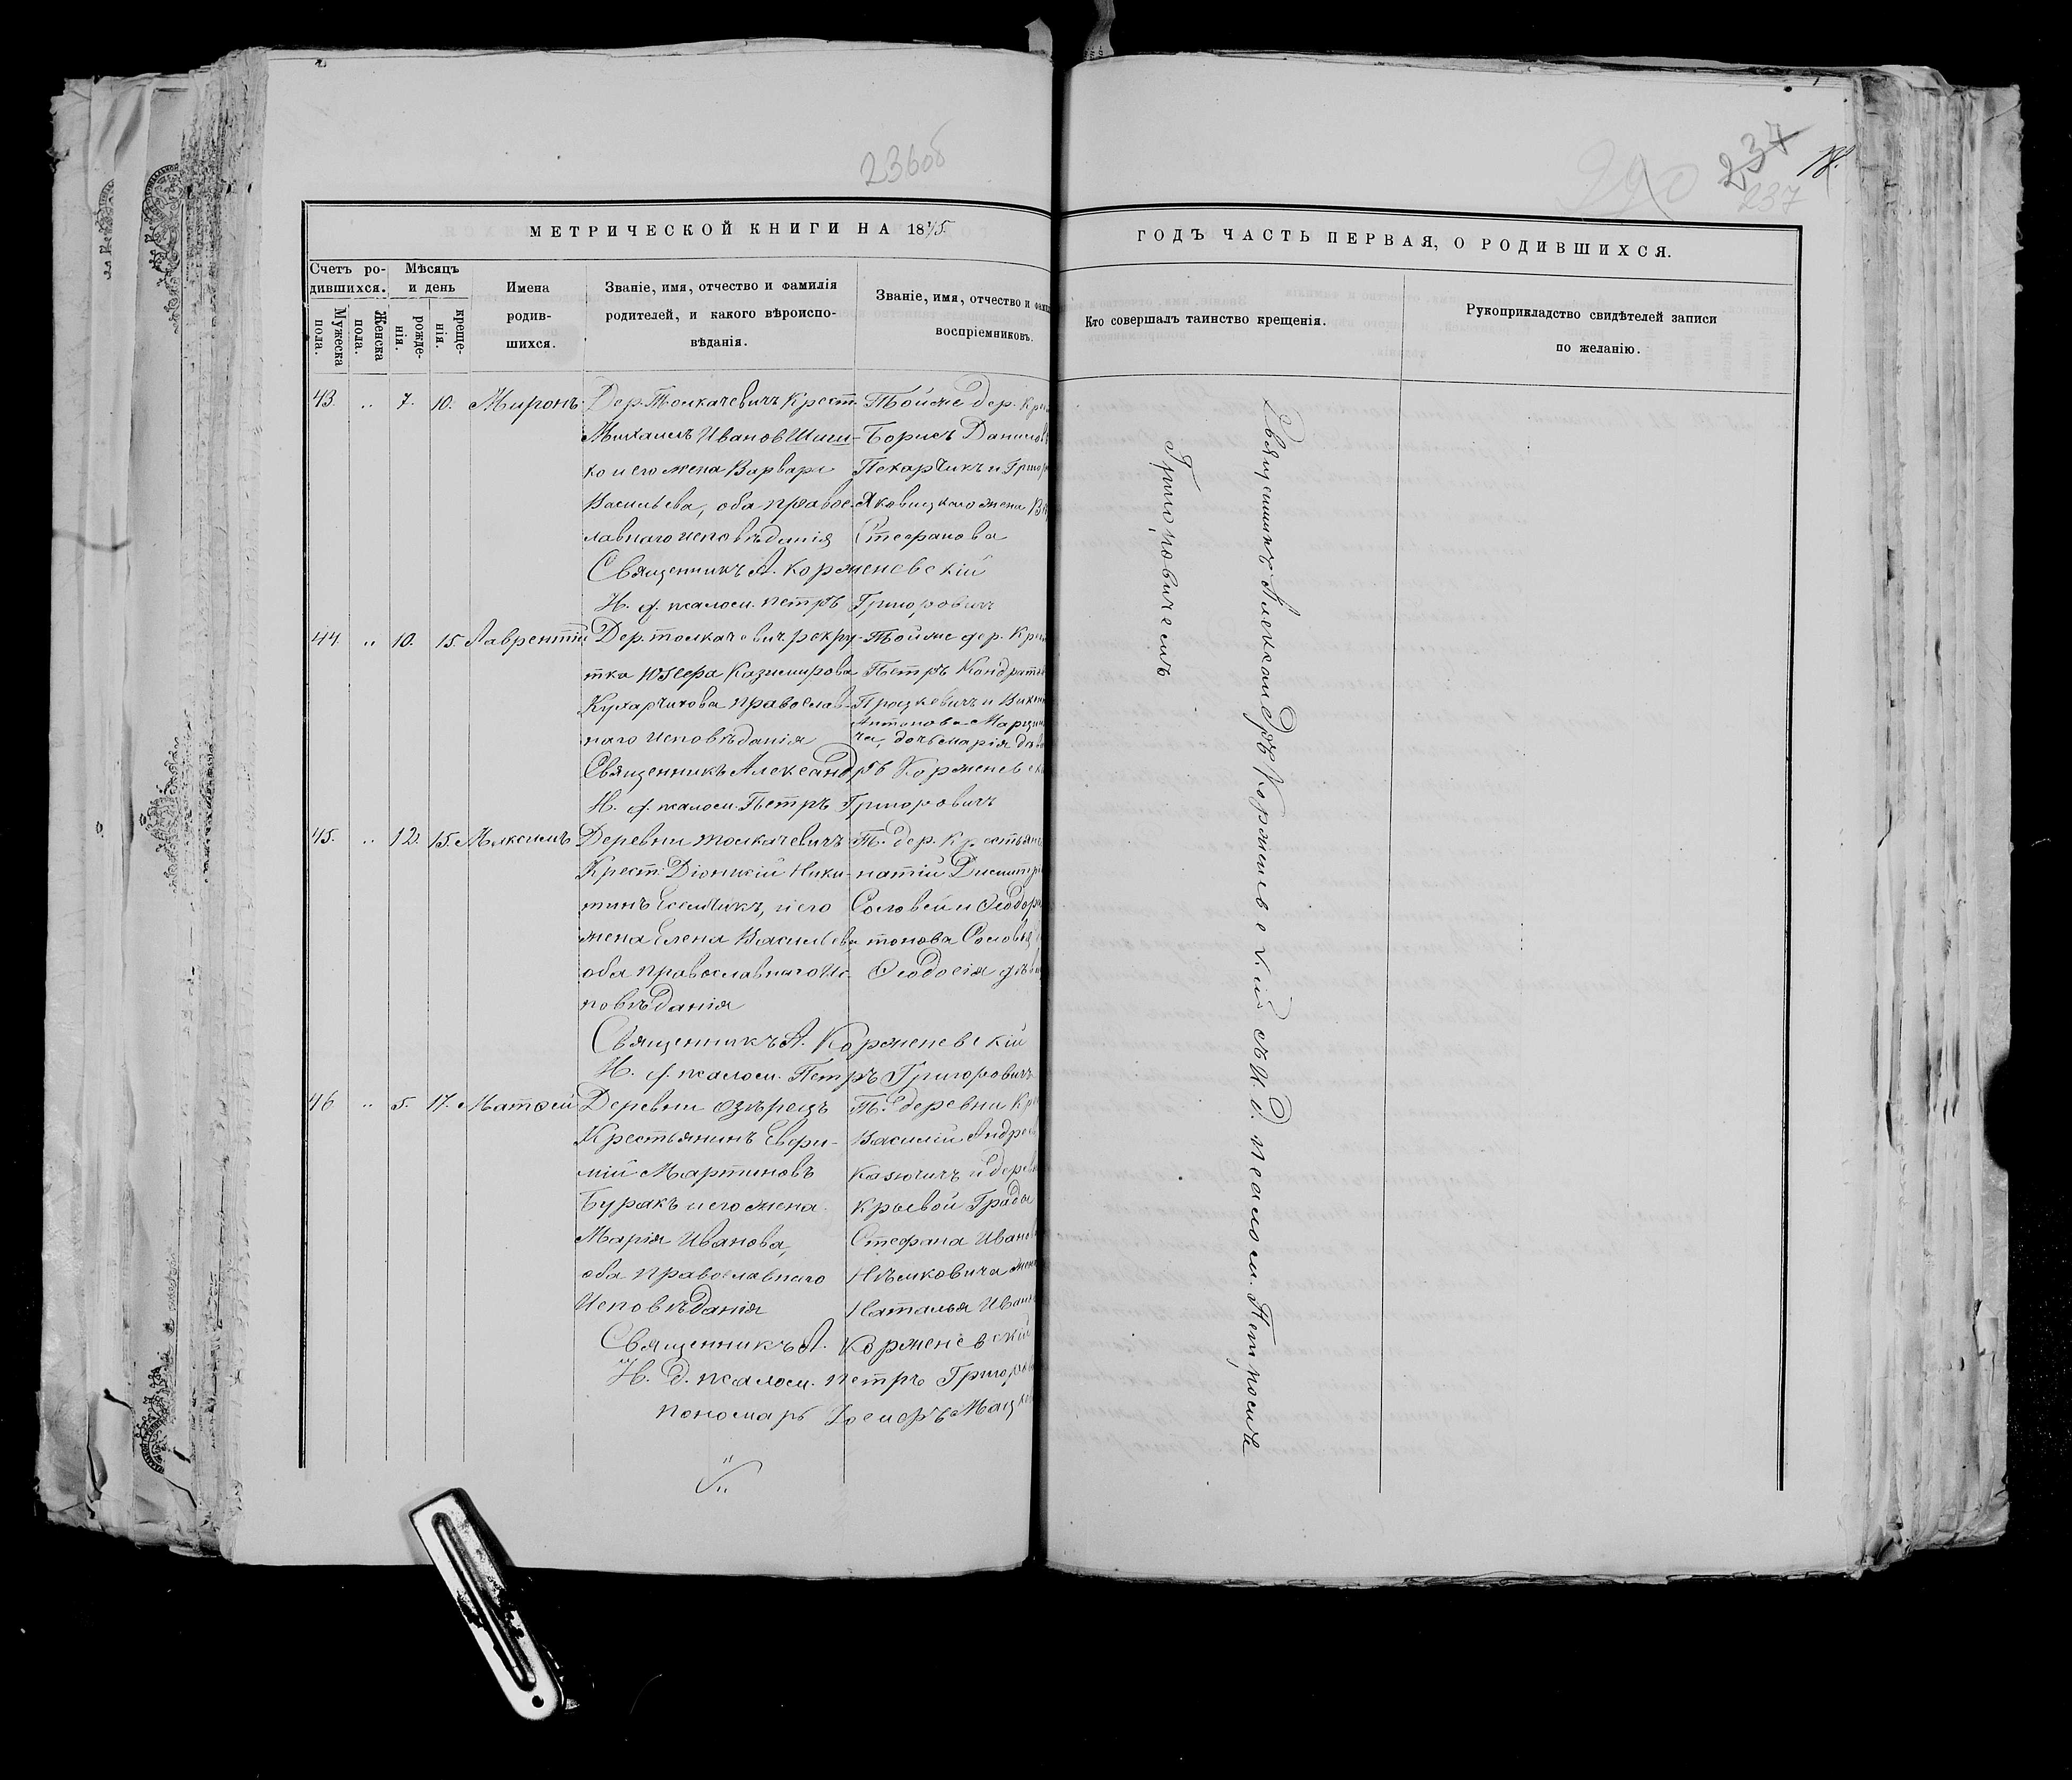 236об
237
237
МЕТРИЧЕСКОЙ КНИГИ НА 1875.
ГОДЪ ЧАСТЬ ПЕРВАЯ, О РОДИВШИХСЯ.
Счетъ ро-
дившихся.
Мужеска
пола.
Женска
пола.
Мѣсяцъ
и день
рожде-
нія.
креще-
нія.
Имена
родив-
шихся.
Званіе, имя, отчество и фамилія
родителей, и какого вѣроиспо-
вѣданія.
Званіе, имя, отчество и
воспріемниковъ.
Кто совершалъ таинство крещенія.
Рукоприкладство свидѣтелей записи
по желанію.
43. " 7. 10. Миронъ.
Дер. Толкачевичъ Крест.
Михаилъ Ивановъ Шиш-
ко и его жена Варвара
Васильева, оба право-
славнаго исповѣданія
Тойже дер.
Борисъ
Пекарчикъ и
Яковицкаго жена
Стефанова
Священникъ А. Корженевскій
И. д. псалом. Петръ Григоровичъ
44. " 10. 15. Лаврентій
Дер. Толкачевичъ рекру-
тка Юзефа Казимирова
Кухарчикова православ-
наго исповѣданія
Тойже дер.
Петръ
Процкевичъ и
Антонова
дочь Марія
Священникъ Александръ
И. д. псалом. Петръ Григоровичъ
45. " 12. 15. Максимъ
Деревни Толкачевичъ
Крест. Діонисій Ники-
тинъ Есельчикъ, и его
жена Елена Васильева
оба православнаго ис-
повѣданія
Т. дер.
Соловей и
тонова
Ѳеодосія
Священникъ А. Корженевскій
И. д. псалом. Петръ Григоровичъ
46 " 5. 17. Матѳей
Деревни Озѣрецъ
Крестьянинъ Евфи-
мій Мартиновъ
Буракъ и его жена
Марія Иванова,
оба православнаго
Исповѣданія
Т. деревни
Василій
Казючичъ и
Крывой Грады
Стефана
Нѣмковича
Наталья
Священникъ А. Корженевскій
И. д. псалом. Петръ
пономарь
Священникъ Александръ Корженевскій съ И. д. псалом. Петромъ
Григоровичемъ